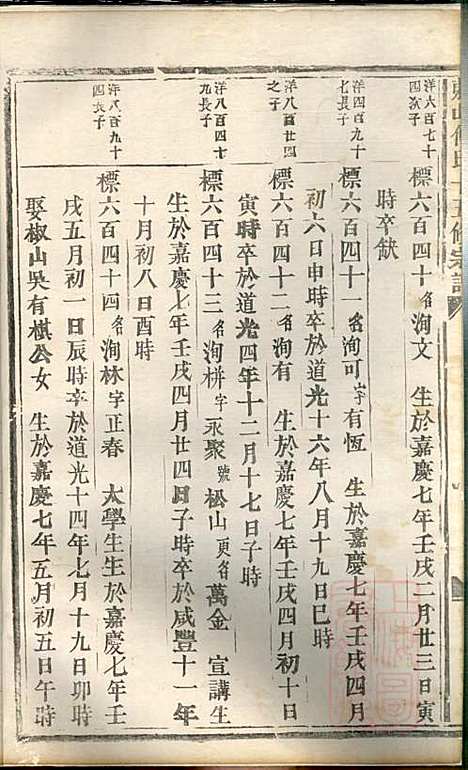 洋六百七十四次子
標六百四十名洵文 生於嘉慶七年壬戌二月廿三日寅
時卒缺
洋四百九十七長子
標六百四十一名洵可字有恆 生於嘉慶七年壬戌四月
初六日申時卒於道光十六年八月十九日巳時
洋八百廿八之子
標六百四十二名洵有 生於嘉慶七年壬戌四月初十日
寅時卒於道光四年十二月十七日子時
洋八百四十九長子
標六百四十三名洵栟字永聚號松山更名萬金 宣講生
生於嘉慶七年壬戌四月廿四日子時卒於咸豐十一年
十月初八日酉時
洋八百九十四長子
標六百四十四名洵林字正春 太學生生於嘉慶七年壬
戌五月初一日辰時卒於道光十四年七月十九日卯時
娶椒山吳有棋公女 生於嘉慶七年五月初五日午時